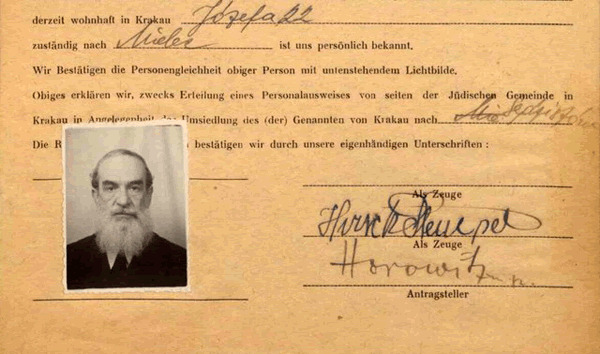 derzeit wohnhaft in Krakau Józefa 22
zuständig nach Mielec ist uns persönlich bekannt.
Wir Bestätigen die Personengleichheit obiger Person mit untenstehendem Lichtbilde.
Obiges erklären wir, zwecks Erteilung eines Personalausweises von seiten der Jüdischen Gemeinde in
Krakau in Angelegenheit der Umsiedlung des (der) Genannten von Krakau nach
Die R bestätigen wir durch unsere eigenhändigen Unterschriften :
Als Zeuge
Als Zeuge
Horowitz
Antragsteller